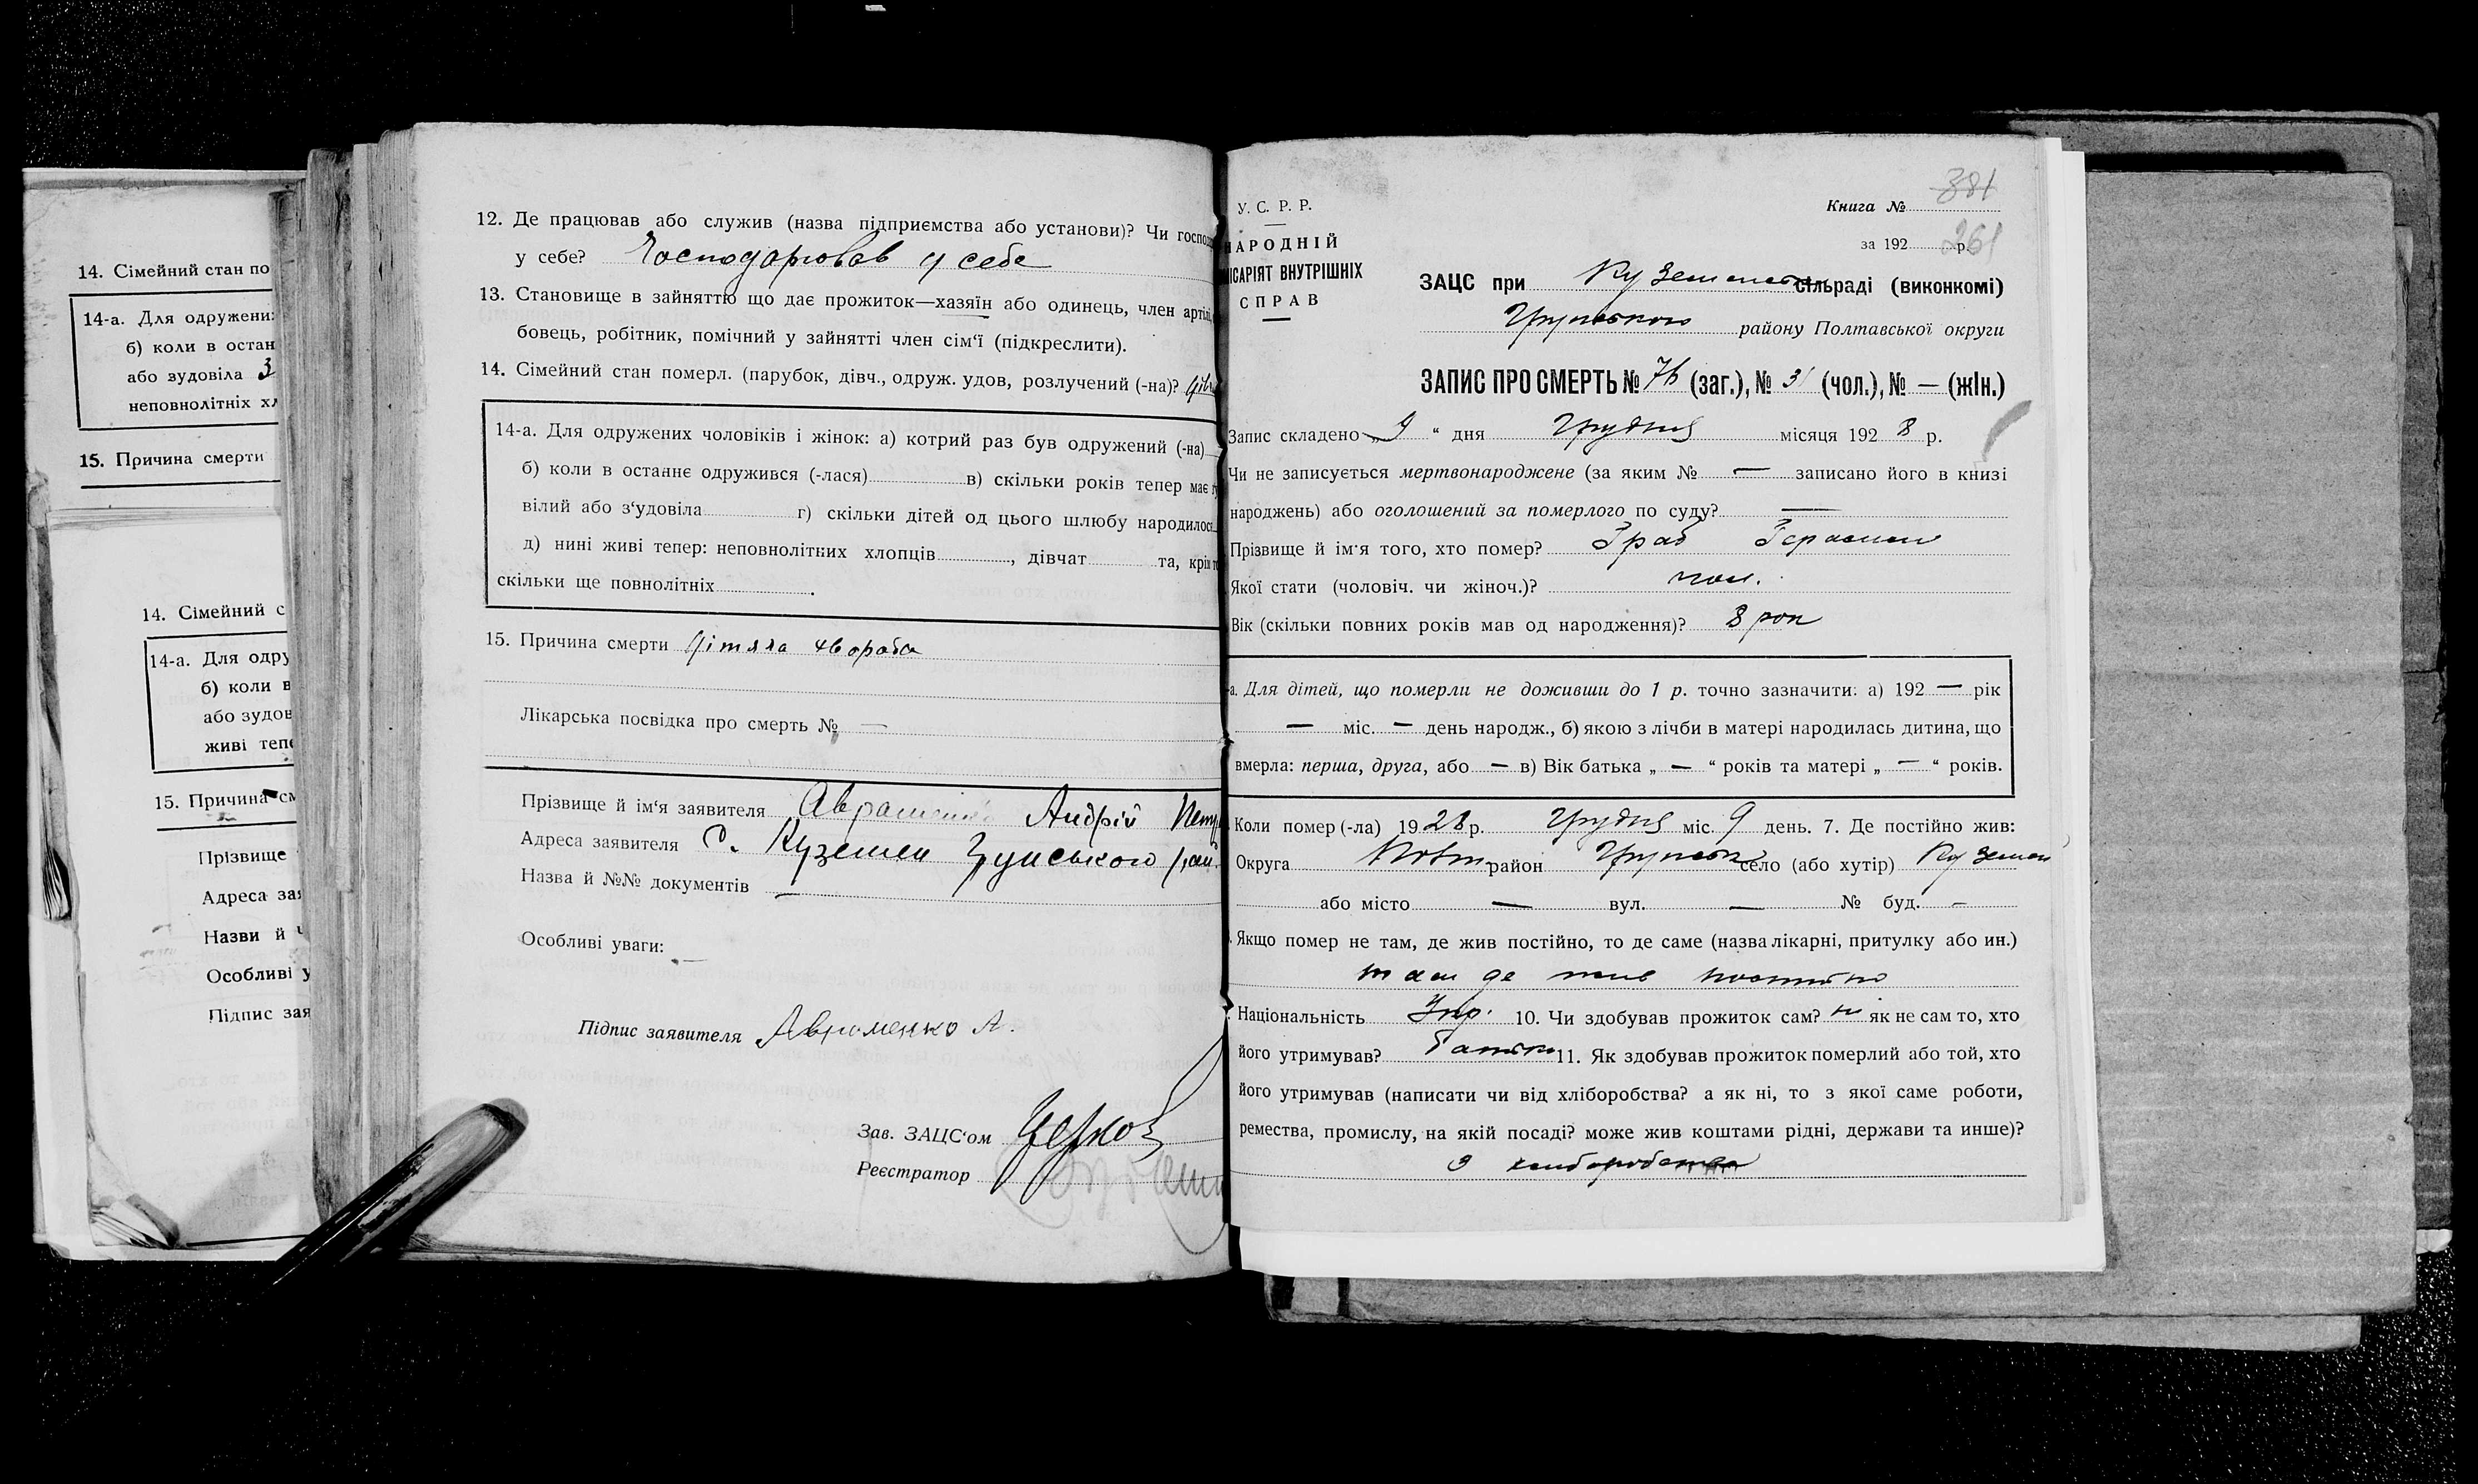 14. Сімейний стан по
14-а. Для одружени
б) коли в остан
або зудовіла З
неповнолітніх х
15. Причина смерти
14. Сімейний с
14-а. Для одру
б) коли в
або зудов
живі теп
15. Причина см
Прізвище
Адреса зая
Назви й ч
Особливі у
Підпис зая
12. Де працював або служив (назва підприємства або установи)? Чи господ
у себе? Господарював у себе
13. Становище в зайняттю що дає прожиток—хазяїн або одинець, член артілі,
бовець, робітник, помічний у зайнятті член сім‘ї (підкреслити).
14. Сімейний стан померл. (парубок, дівч., одруж. удов, розлучений (-на)?
14-а. Для одружених чоловіків і жінок: а) котрий раз був одружений (-на)
б) коли в останнє одружився (-лася) в) скільки років тепер має
вілий або з‘удовіла г) скільки дітей од цього шлюбу народилос
д) нині живі тепер: неповнолітних хлопців , дівчат та, крім
скільки ще повнолітніх .
15. Причина смерти дітяча хвороба
Лікарська посвідка про смерть № —
Прізвище й ім‘я заявителя Авраменко Андрій Петр
Адреса заявителя с. Куземен Грунського рай.
Назва й №№ документів —
Особливі уваги: —
Підпис заявителя Авраменко А.
Зав. ЗАЦС‘ом
Реєстратор
У. С. Р. Р.
НАРОДНІЙ
ІСАРІЯТ ВНУТРІШНІХ
СПРАВ
381
Книга №
за 192 р. 261
ЗАЦС при Куземенськ сільраді (виконкомі)
Грунського району Полтавської округи
ЗАПИС ПРО СМЕРТЬ № 76 (заг.), № 31 (чол.), № — (жін.)
Запис складено „9“ дня Грудня місяця 1928 р.
Чи не записується мертвонароджене (за яким № — записано його в книзі
народжень) або оголошений за померлого по суду? —
Прізвище й ім‘я того, хто помер? Граб Герасим
Якої стати (чоловіч. чи жіноч.)? чол.
Вік (скільки повних років мав од народження)? 8 рок
а. Для дітей, що померли не доживши до 1 р. точно зазначити: а) 192 — рік
— міс. — день народж., б) якою з лічби в матері народилась дитина, що
вмерла: перша, друга, або — в) Вік батька „ — “ років та матері „ — “ років.
Коли помер (-ла) 1928 р. Грудня міс. 9 день. 7. Де постійно жив:
Округа Полт. район Грунськ село (або хутір) Куземен
або місто — вул. — № буд. —
Якщо помер не там, де жив постійно, то де саме (назва лікарні, притулку або ин.)
там де жив постійно
Національність Укр. 10. Чи здобував прожиток сам? ні як не сам то, хто
його утримував? Батько 11. Як здобував прожиток померлий або той, хто
його утримував (написати чи від хліборобства? а як ні, то з якої саме роботи,
ремества, промислу, на якій посаді? може жив коштами рідні, держави та инше)?
З хліборобства